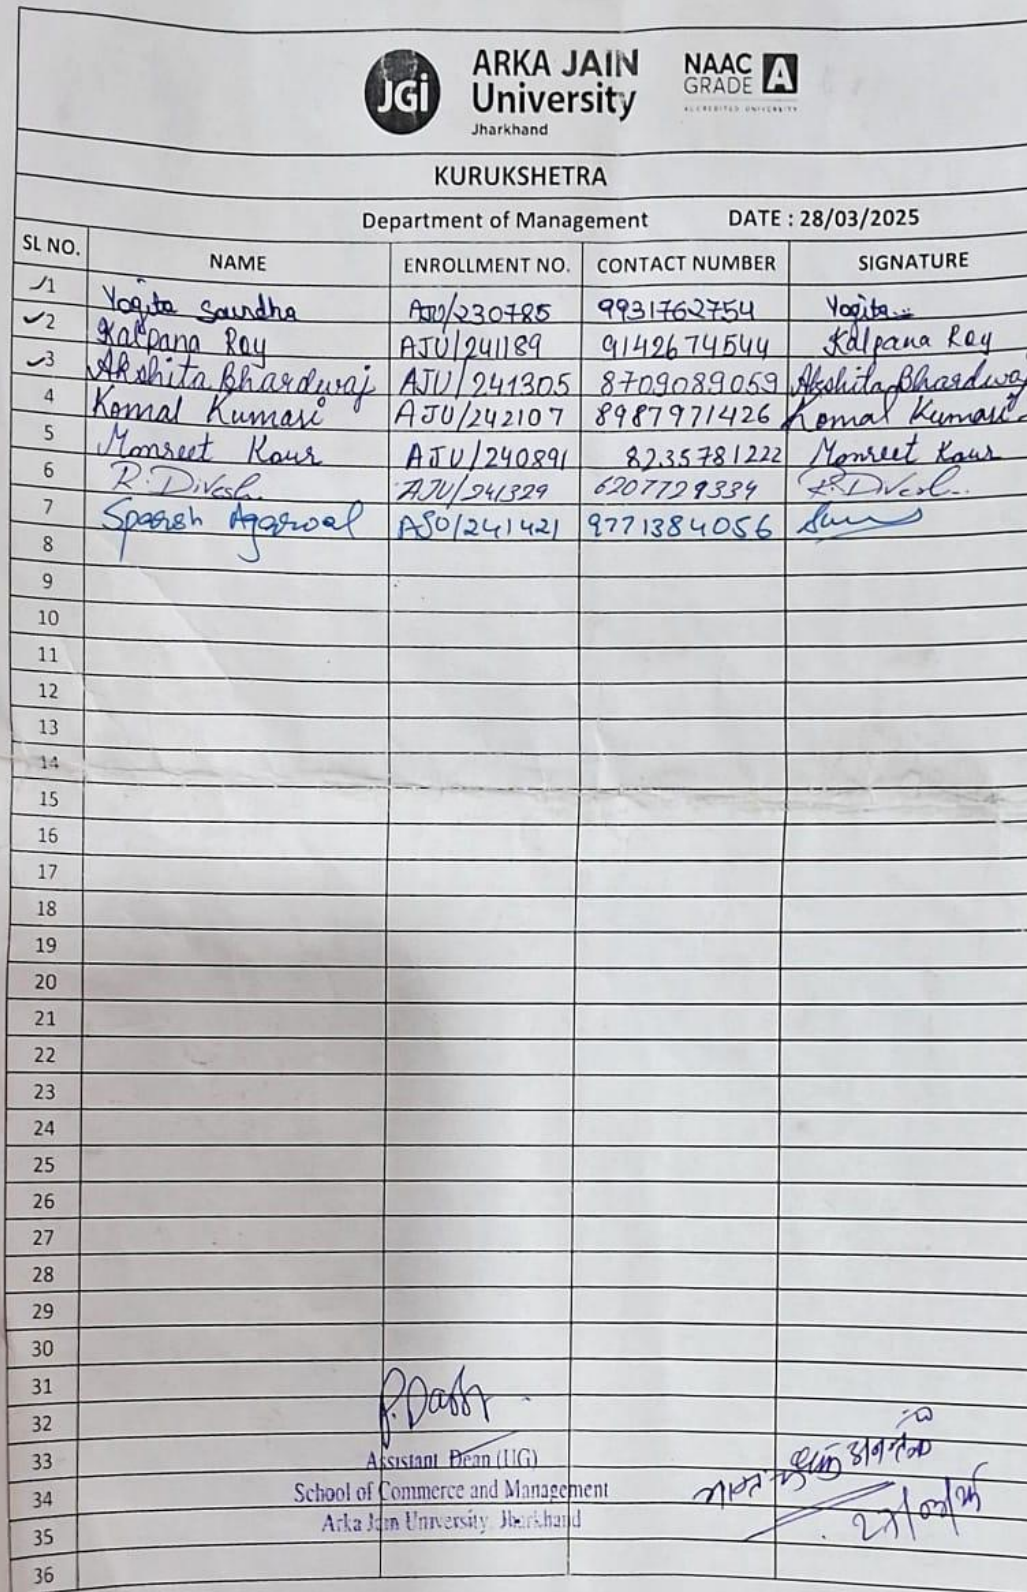 JGi
ARKA JAIN
University
Jharkhand
NAAC
GRADE A
ACCREDITED UNIVERSITY
KURUKSHETRA
Department of Management DATE : 28/03/2025
SL NO. NAME ENROLLMENT NO. CONTACT NUMBER SIGNATURE
1 Yogita Saundha AJU/230785 9931762754 Yogita
2 Kalpana Roy AJU/241189 9142674544 Kalpana Roy
3 Akshita Bhardwaj AJU/241305 8709089059 Akshita Bhardwaj
4 Komal Kumari AJU/242107 8987971426 Komal Kumari
5 Monreet Kaur AJU/240891 8235781222 Monreet Kaur
6 R. Divesh AJU/241329 6207729334 R. Divesh
7 Sparsh Agarwal AJU/241421 9771384056
8
9
10
11
12
13
14
15
16
17
18
19
20
21
22
23
24
25
26
27
28
29
30
31
32
33 Assistant Dean (UG)
34 School of Commerce and Management
35 Arka Jain University, Jharkhand
36